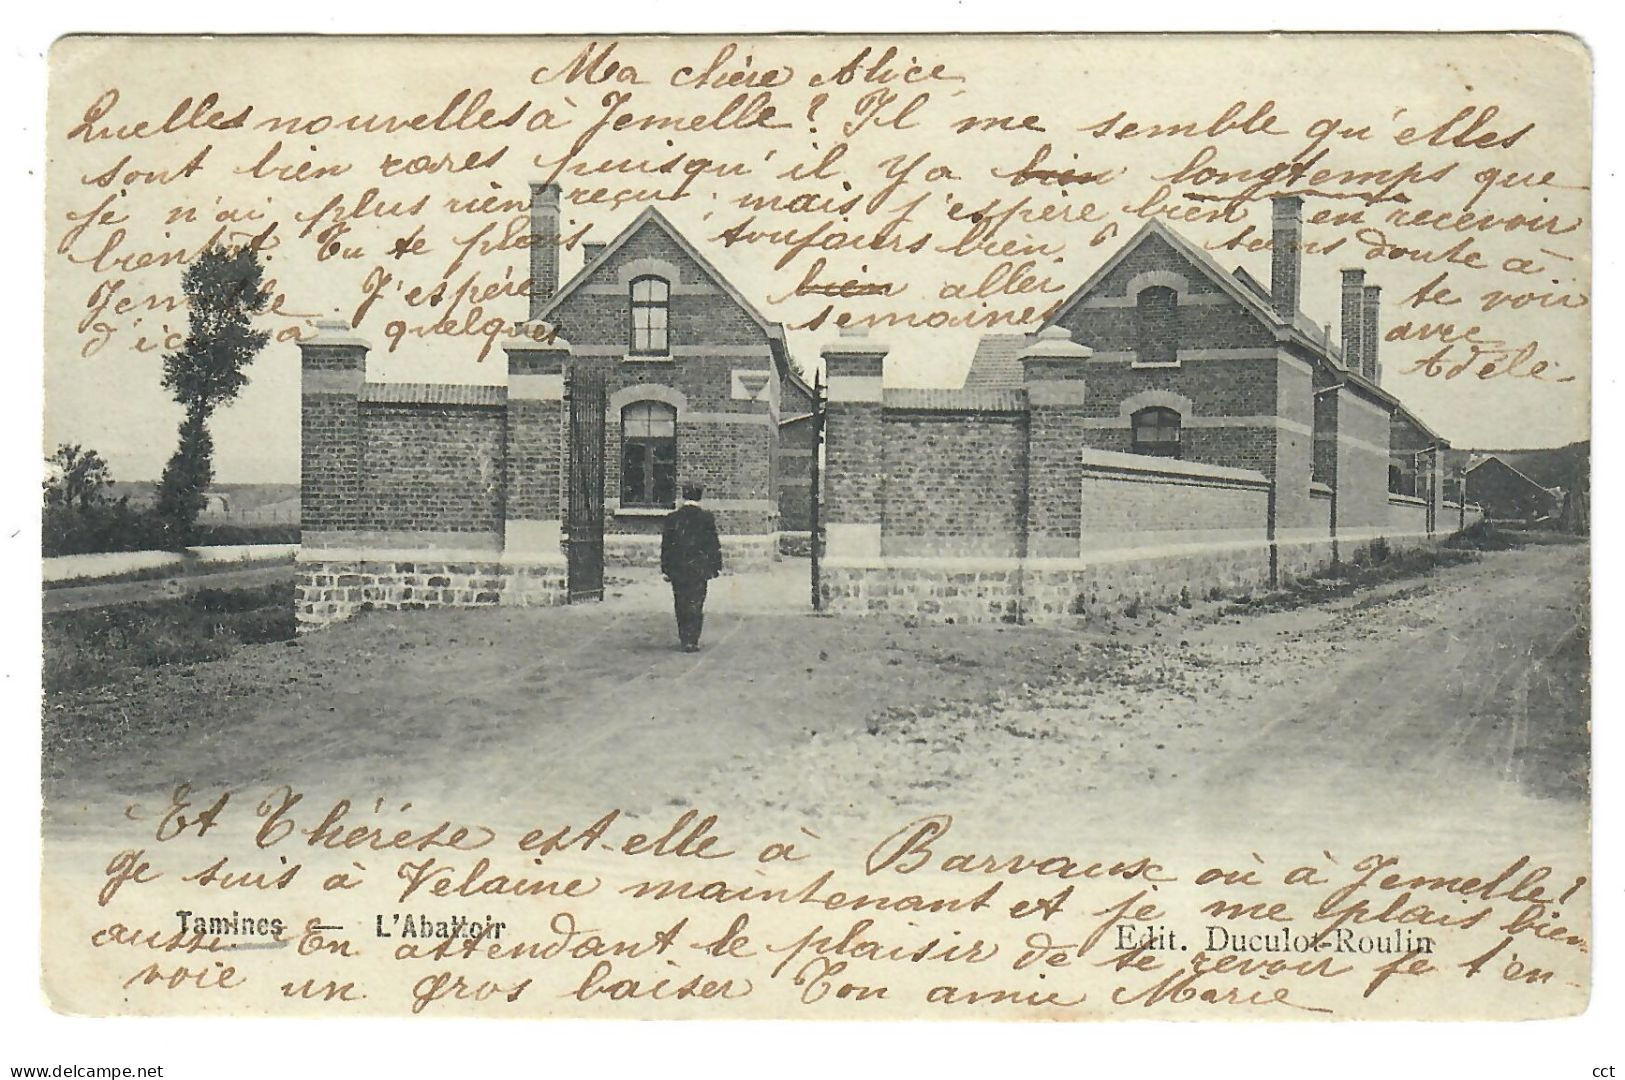 Ma chère Alice,
Quelles nouvelles à Jemelle? Il me semble qu'elles
sont bien rares puisqu'il y a bien longtemps que
je n'ai plus rien reçu; mais j'espère bien en recevoir
bientôt. Tu te plais toujours bien sans doute à
Jemelle. J'espère bien aller te voir
d'ici à quelques semaines avec
Adèle.
Et Thérèse est-elle à Barvaux où à Jemelle?
Je suis à Velaine maintenant et je me plais bien
Tamines — L'Abattoir
Edit. Duculot-Roulin
aussi. En attendant le plaisir de te revoir je t'en-
voie un gros baiser Ton amie Marie
www.delcampe.net
cct